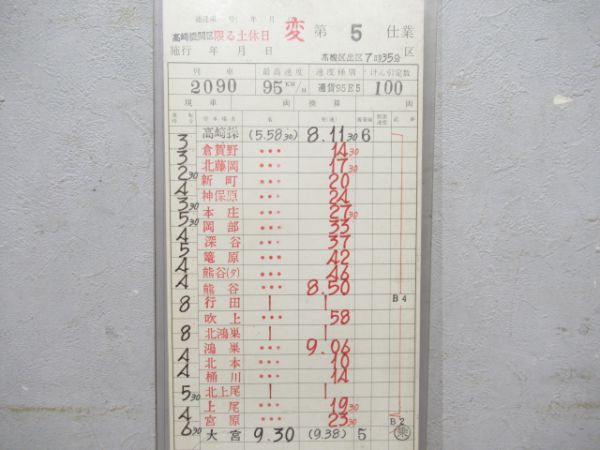 達 号 年 月
高崎機関区 限る土休日 変 第 5 仕業
施行 年 月 日 高機区出区7時35分 区
列車 最高速度 速度種別 けん引定数
2090 95KM/H 通貨95E5 100
現車 両 換算 両
高崎操 (5.58 30) 8.11 30 6
3 倉賀野 ••• 14 30
3 北藤岡 ••• 17 30
2 30 新町 ••• 20
4 神保原 ••• 24
3 30 本庄 ••• 27 30
5 30 岡部 ••• 33
4 深谷 ••• 37
5 籠原 ••• 42
4 熊谷(タ) ••• 46
4 熊谷 ••• 8.50
行田 | | B4
8 吹上 ••• 58
北鴻巣 | |
8 鴻巣 ••• 9.06
4 北本 ••• 10
4 桶川 ••• 14
北上尾 | |
5 30 上尾 ••• 19 30
4 宮原 ••• 23 30 B2
6 30 大宮 9.30 (9.38) 5 乗